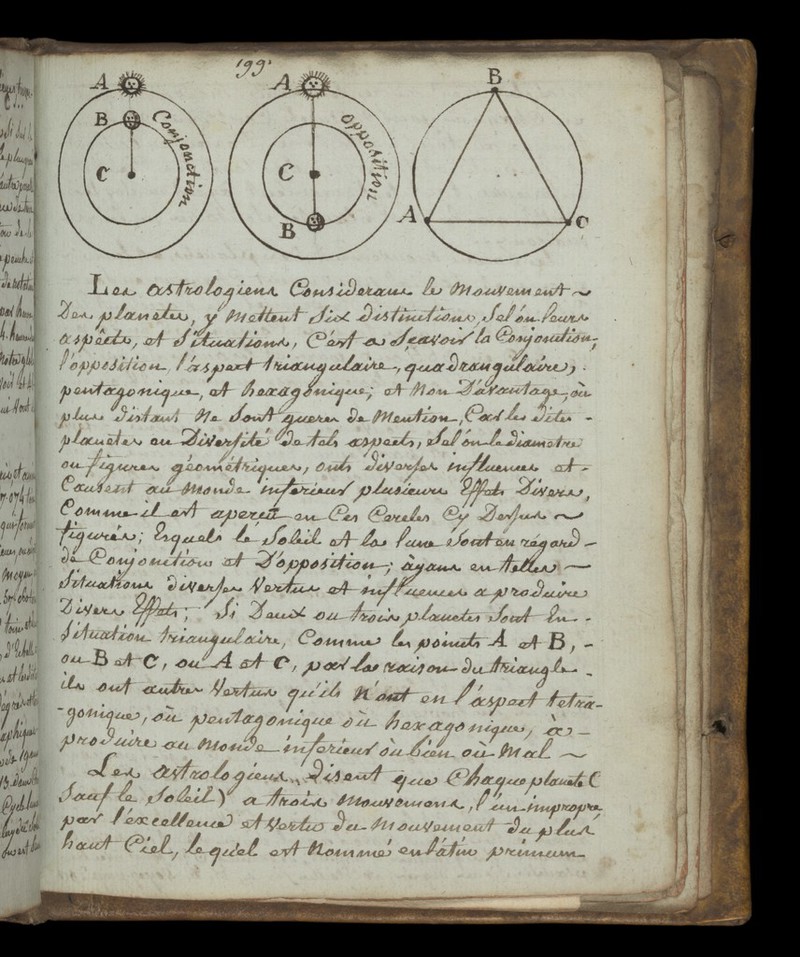 199.
A
B
C
Conjonction
A
C
B
opposition
B
A
C
Les astrologiens Considerans le Mouvement
Des planetes, y Mettent Six distinctions, Selon leurs
aspécts, et Situations, C'est a Sçavoir la Conjonction,
l'opposition, l'aspect triangulaire, quadrangulaire,
pentagonique, et hexagonique; et Non Davantage, où
plus distant Ne Sont guerer de Mention, Car les dites
planetes en Diversité de tels aspects, Selon le diametre
ou figures géométriques, onts diverses influences et
Causent au Monde inferieur plusieurs Effets Divers,
Comme il est aperçu en Ces Cercles Cy Dessus
figurés; Esquels le Soleil et la lune Sont en régard
de Conjonction et D'opposition; àyans en telles
Situations diverses Vertus et influences a produire
Divers Effets; Si Deux ou trois planetes Sont En
Situation triangulaire, Comme les points A et B,
ou B et C, ou A et C, par la raison du triangle
ils ont autres Vertus qu'ils N'ont en l'aspect tetra-
-gonique, où pentagonique où hexagonique, à
produire au Monde inferieur ou bien où Mal
Les Astrologiens Disent que Chaque planete (
Sauf le Soleil) a trois Mouvemens, l'un impropre
par l'excellence et Vertu du Mouvement du plus
haut Ciel, lequel est Nommé en látin primum